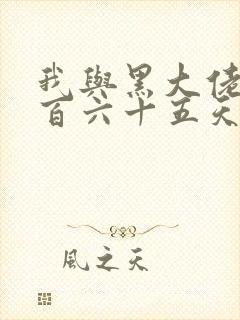 我與黑大佬
百六十五天
風之天